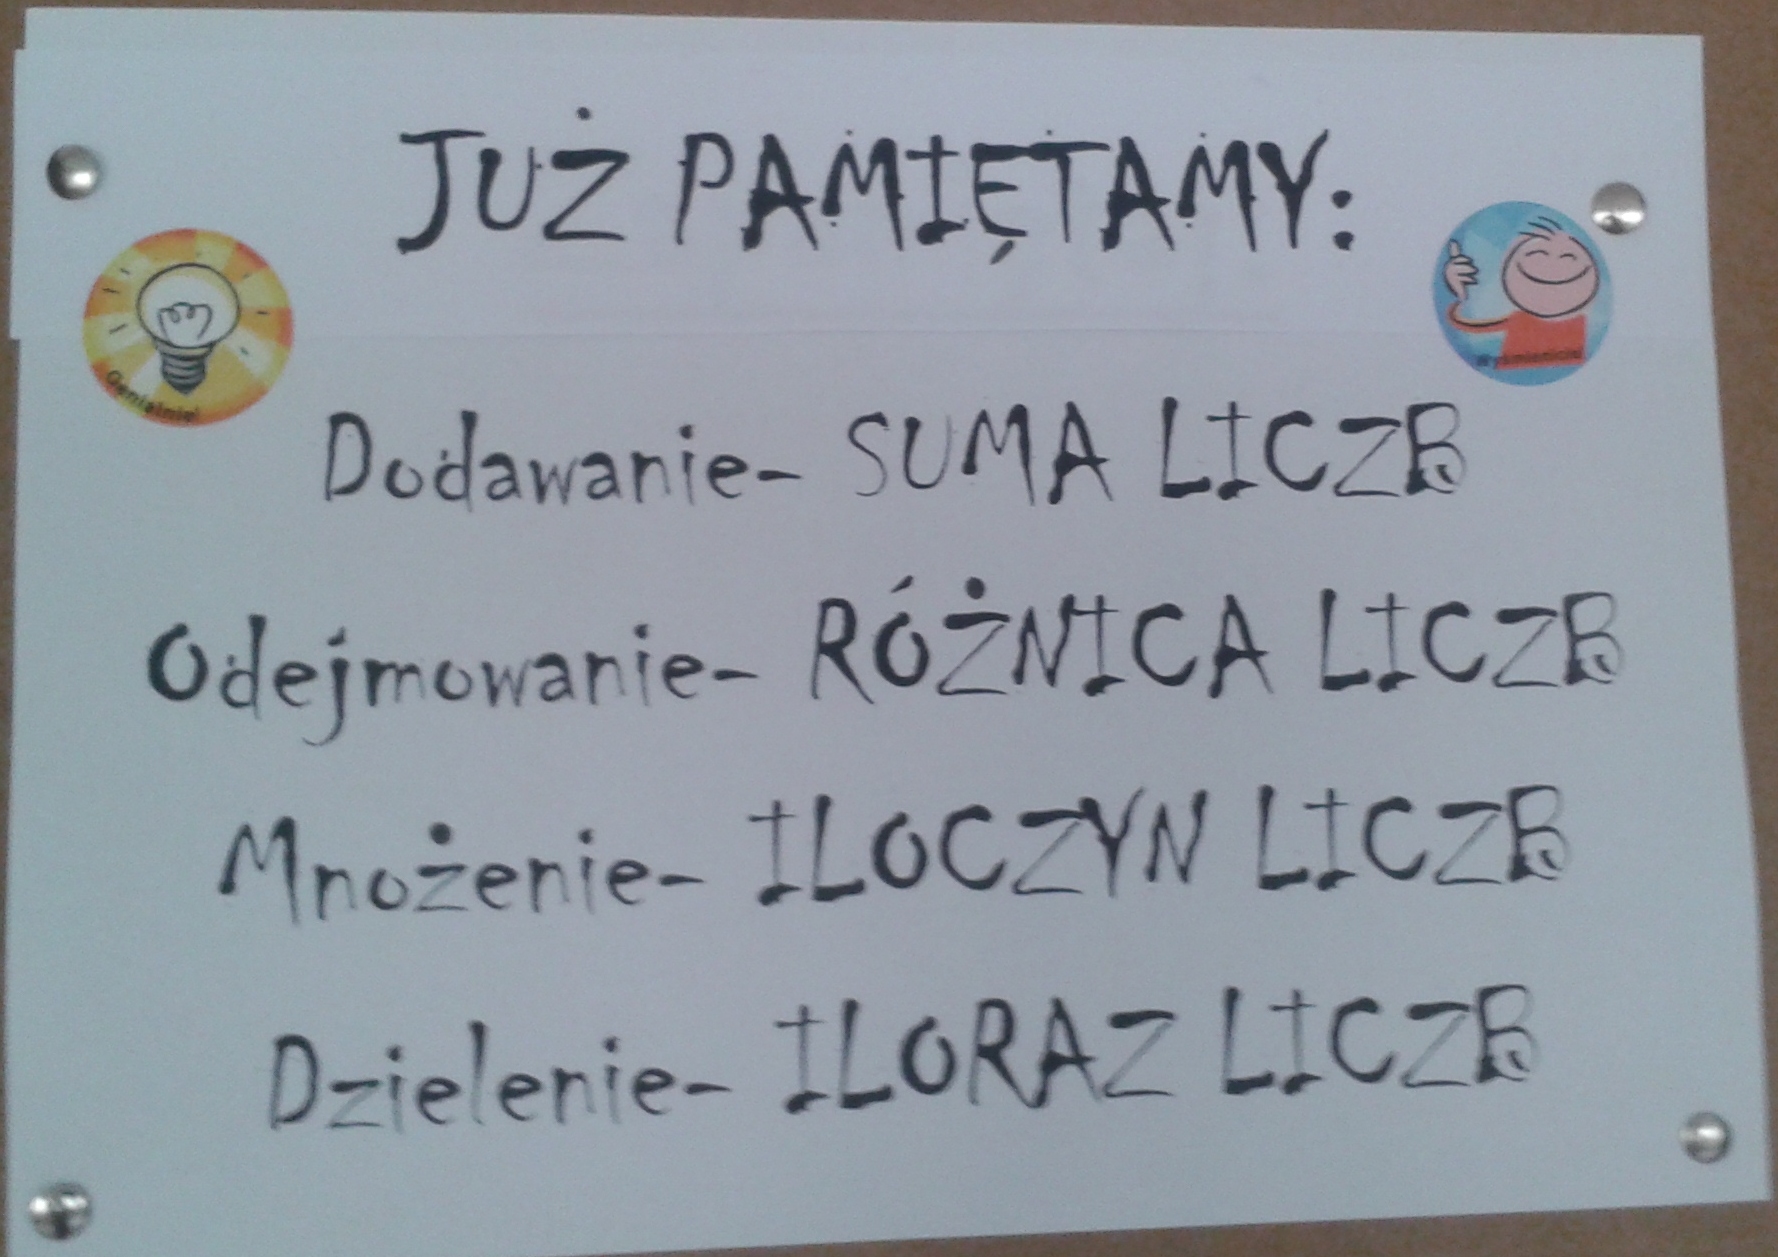 JUŻ PAMIĘTAMY:
Genialnie!
Dodawanie- SUMA LICZB
Odejmowanie- RÓŻNICA LICZB
Mnożenie- ILOCZYN LICZB
Dzielenie- ILORAZ LICZB